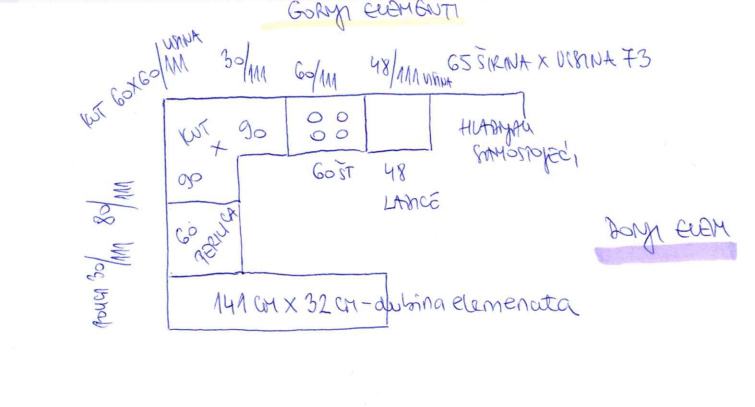 GORNJI ELEMENTI
KUT 60x60/111 VISINA
30/111
60/111
48/111 VISINA
65 ŠIRINA X VISINA 73
KUT X 90
90
HLADNJAK
SAMOSTOJEĆI
60 ŠT
48
LADICE
60 PERILICA
80/111
POLICA 30/111
DONJI ELEM
141 CM X 32 CM - dubina elemenata